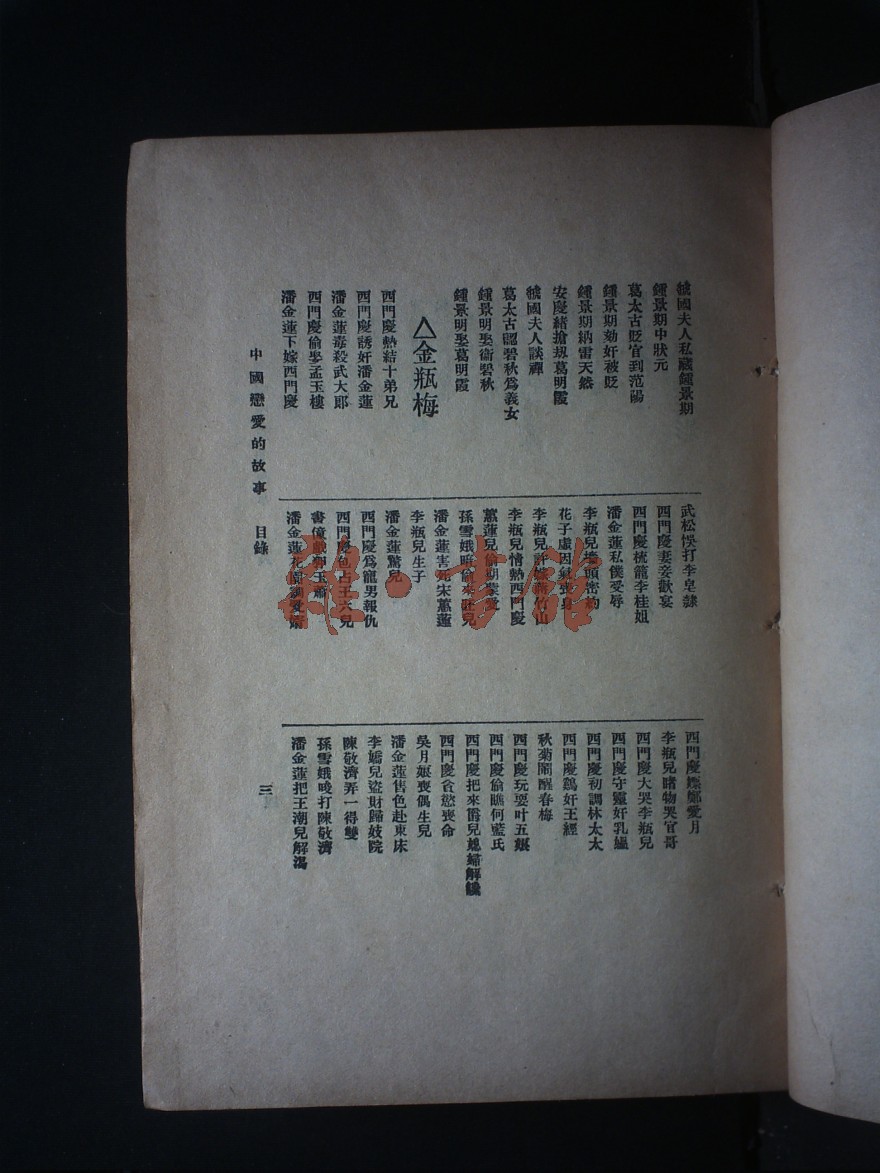 虢國夫人私藏鍾景期
鍾景期中狀元
葛太古貶官到范陽
鍾景期劾奸被貶
鍾景期納雷天然
安慶緒搶親葛明霞
虢國夫人談禪
葛太古認碧秋爲義女
鍾景明娶衞碧秋
鍾景明娶葛明霞
△金瓶梅
西門慶熱結十弟兄
西門慶誘奸潘金蓮
潘金蓮毒殺武大郎
西門慶偷娶孟玉樓
潘金蓮下嫁西門慶
武松悮打李皂隸
西門慶妻妾歡宴
西門慶梳籠李桂姐
潘金蓮私僕受辱
李瓶兒墻頭密約
花子虛因氣喪身
李瓶兒許嫁蔣竹山
李瓶兒情熱西門慶
蕙蓮兒偷期蒙愛
孫雪娥暗偷來旺兒
潘金蓮害死宋蕙蓮
李瓶兒生子
潘金蓮驚兒
西門慶爲寵男報仇
西門慶色占王六兒
書僮戲狎玉簫
潘金蓮花園調愛婿
西門慶嫖鄭愛月
李瓶兒睹物哭官哥
西門慶大哭李瓶兒
西門慶守靈奸乳媼
西門慶初調林太太
西門慶鷄奸王經
秋菊鬧醒春梅
西門慶玩耍叶五娘
西門慶偷瞧何藍氏
西門慶把來爵兒媳婦解饞
西門慶貪慾喪命
吳月娘喪偶生兒
潘金蓮售色赴東床
李嬌兒盜財歸妓院
陳敬濟弄一得雙
孫雪娥唆打陳敬濟
潘金蓮把王潮兒解渴
中國戀愛的故事 目錄
三
雜·書館